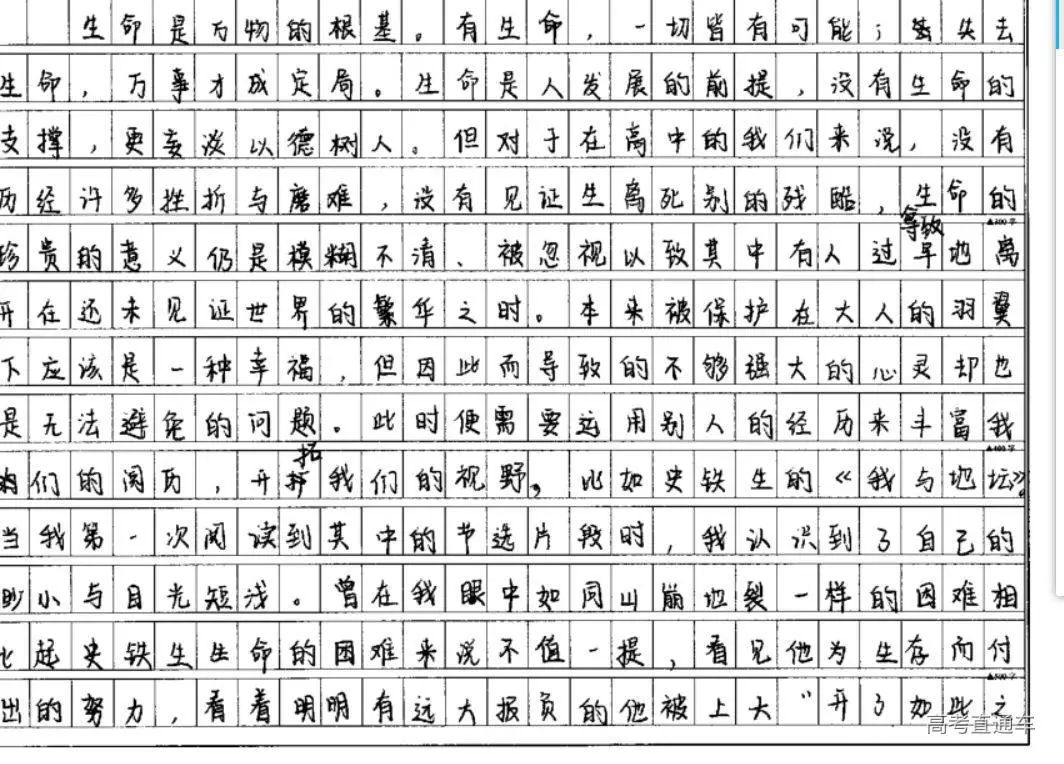 生命是万物的根基。有生命，一切皆有可能；失去
生命，万事才成定局。生命是人发展的前提，没有生命的
支撑，更妄谈以德树人。但对于在高中的我们来说，没有
历经许多挫折与磨难，没有见证生离死别的残酷，生命的
导致
▲300字
珍贵的意义仍是模糊不清、被忽视以致其中有人过早地离
开在还未见证世界的繁华之时。本来被保护在大人的羽翼
下应该是一种幸福，但因此而导致的不够强大的心灵却也
是无法避免的问题。此时便需要运用别人的经历来丰富我
拓
▲400字
们的阅历，开我们的视野。比如史铁生的《我与地坛》。
当我第一次阅读到其中的节选片段时，我认识到了自己的
渺小与目光短浅。曾在我眼中如同山崩地裂一样的困难相
比起史铁生生命的困难来说不值一提，看见他为生存而付
▲500字
出的努力，看着明明有远大报负的他被上大"开了如此之
高考直通车